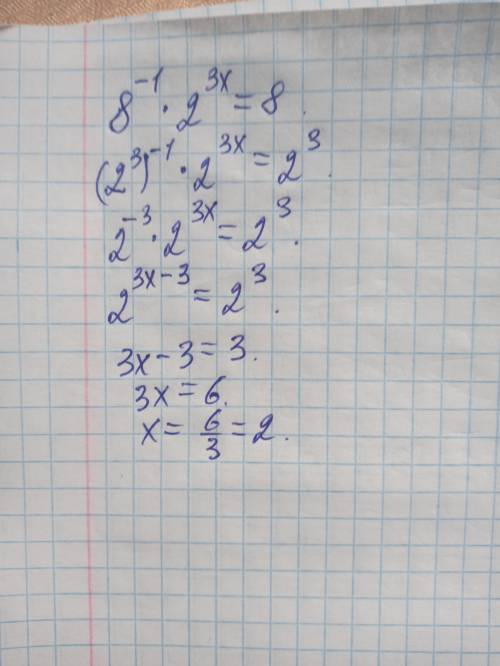 8⁻¹ · 2³ˣ = 8.
(2³)⁻¹ · 2³ˣ = 2³.
2⁻³ · 2³ˣ = 2³.
2³ˣ⁻³ = 2³.
3x − 3 = 3.
3x = 6.
x = 6/3 = 2.